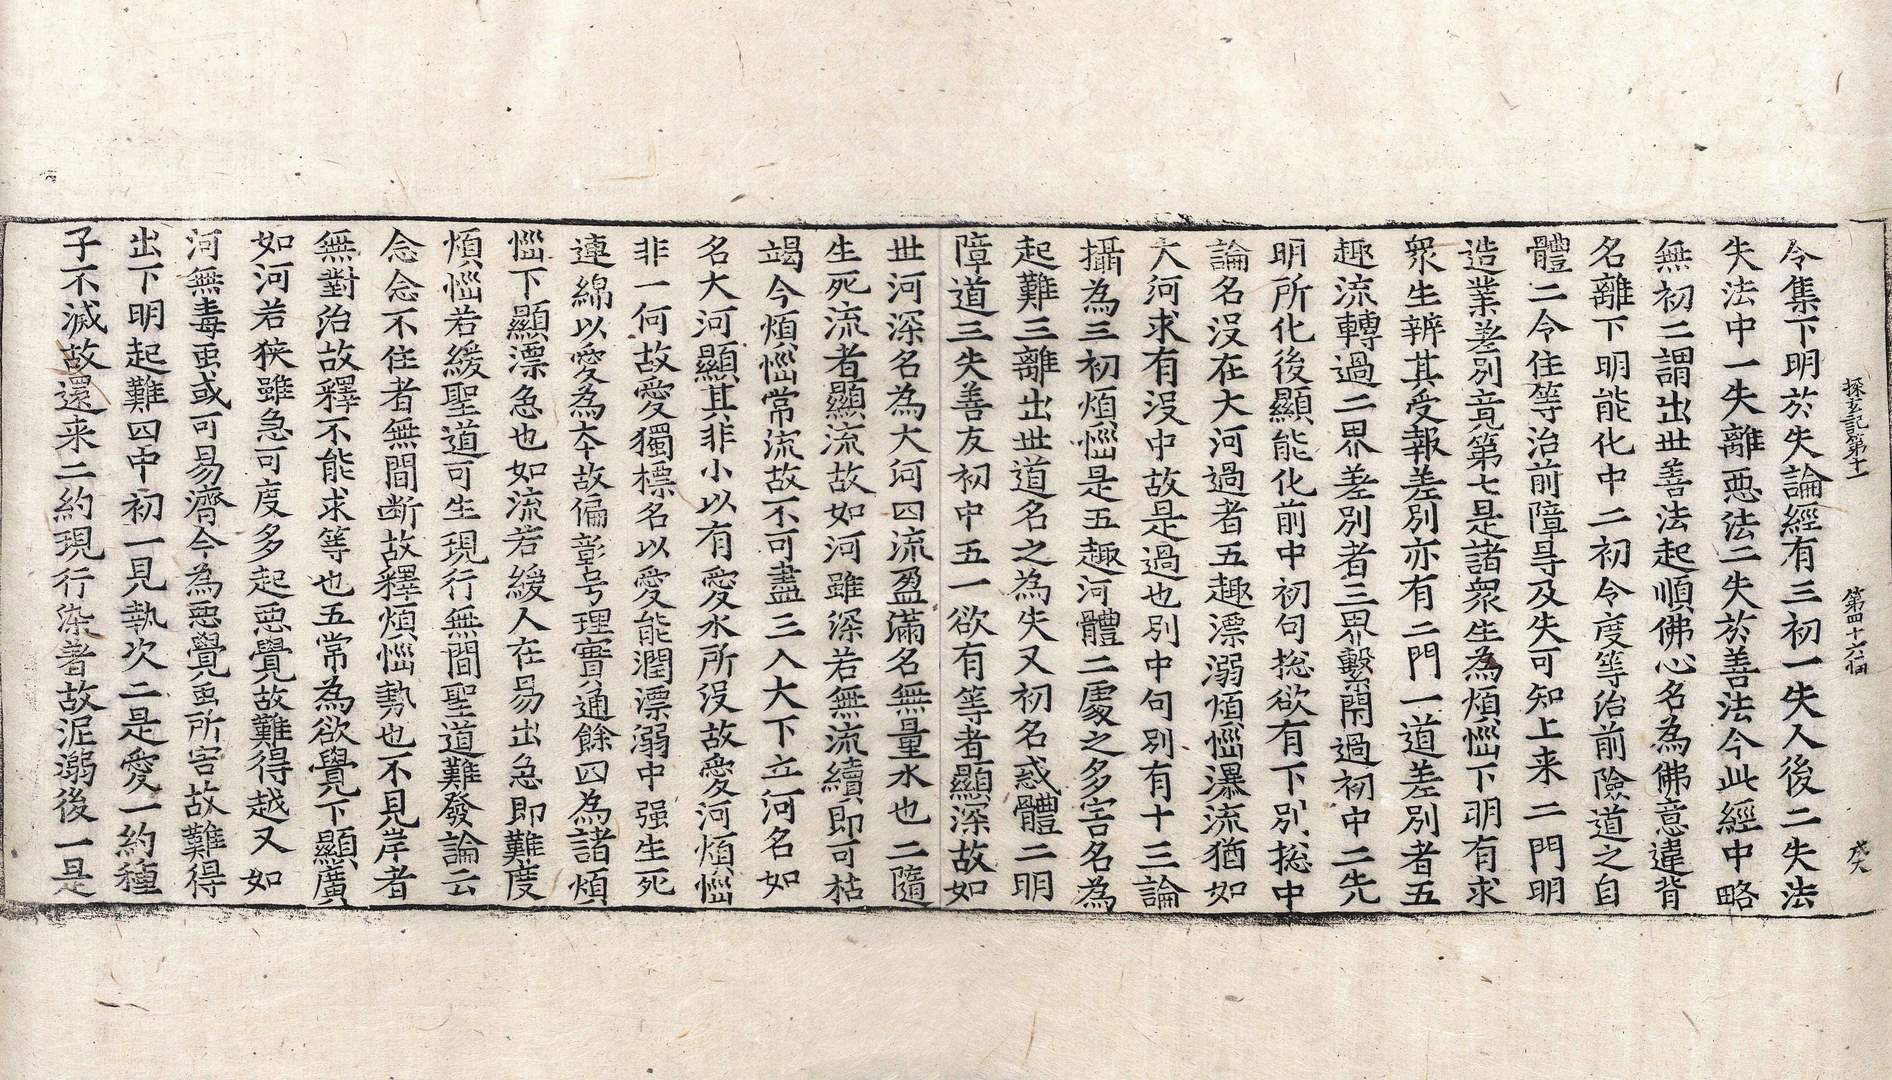 探玄記第十一　第四十六幅　戌大
令集下明於失論經有三初一失人後二失法
失法中一失離悪法二失於善法今此經中略
無初二謂出世善法起順佛心名為佛意違背
名離下明能化中二初令度等治前險道之自
體二令住等治前障㝵及失可知上来二門明
造業差別竟第七是諸衆生為煩惱下明有求
衆生辨其受報差別亦有二門一道差別者五
趣流轉過二界差別者三界繫閇過初中二先
明所化後顯能化前中初句揔欲有下別揔中
論名没在大河過者五趣漂溺煩惱瀑流猶如
大河求有没中故是過也別中句別有十三論
攝為三初煩惱是五趣河體二處之多害名為
起難三離出世道名之為失又初名惑體二明
障道三失善友初中五一欲有等者顯深故如
世河深名為大河四流盈滿名無量水也二隨
生死流者顯流故如河雖深若無流續即可枯
竭今煩惱常流故不可盡三入大下立河名如
名大河顯其非小以有愛水所没故愛河煩惱
非一何故愛獨標名以愛能潤漂溺中强生死
連綿以愛為夲故偏彰号理實通餘四為諸煩
惱下顯漂急也如流若緩人在易出急即難度
煩惱若緩聖道可生現行無間聖道難發論云
念念不住者無間断故釋煩惱勢也不見岸者
無對治故釋不能求等也五常為欲覺下顯廣
如河若狹雖急可度多起悪覺故難得越又如
河無毒䖝或可易濟今為悪覺䖝所害故難得
出下明起難四中初一見執次二是愛一約種
子不滅故還来二約現行染著故泥溺後一是